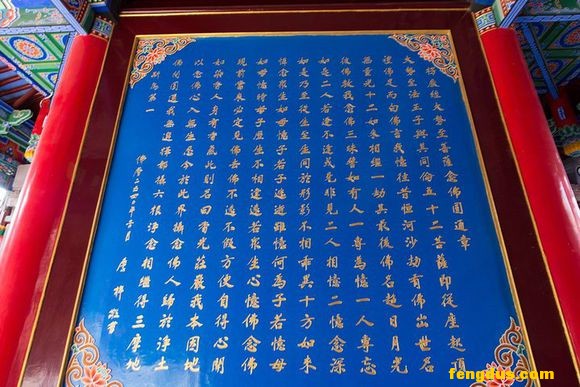 楞嚴經大勢至菩薩念佛圓通章
大勢至法王子與其同倫五十二菩薩即從座起頂
禮佛足而白佛言我憶往昔恒河沙劫有佛出世名
無量光十二如來相繼一劫其最後佛名超日月光
彼佛教我念佛三昧譬如有人一專為憶一人專忘
如是二人若逢不逢或見非見二人相憶二憶念深
如是乃至從生至生同於形影不相乖異十方如來
憐念眾生如母憶子若子逃逝雖憶何為子若憶母
如母憶時母子歷生不相違遠若眾生心憶佛念佛
現前當來必定見佛去佛不遠不假方便自得心開
如染香人身有香氣此則名曰香光莊嚴我本因地
以念佛心入無生忍今於此界攝念佛人歸於淨土
佛問圓通我無選擇都攝六根淨念相繼得三摩地
斯為第一
佛曆二五四〇年子月 敬書
fengdus.com